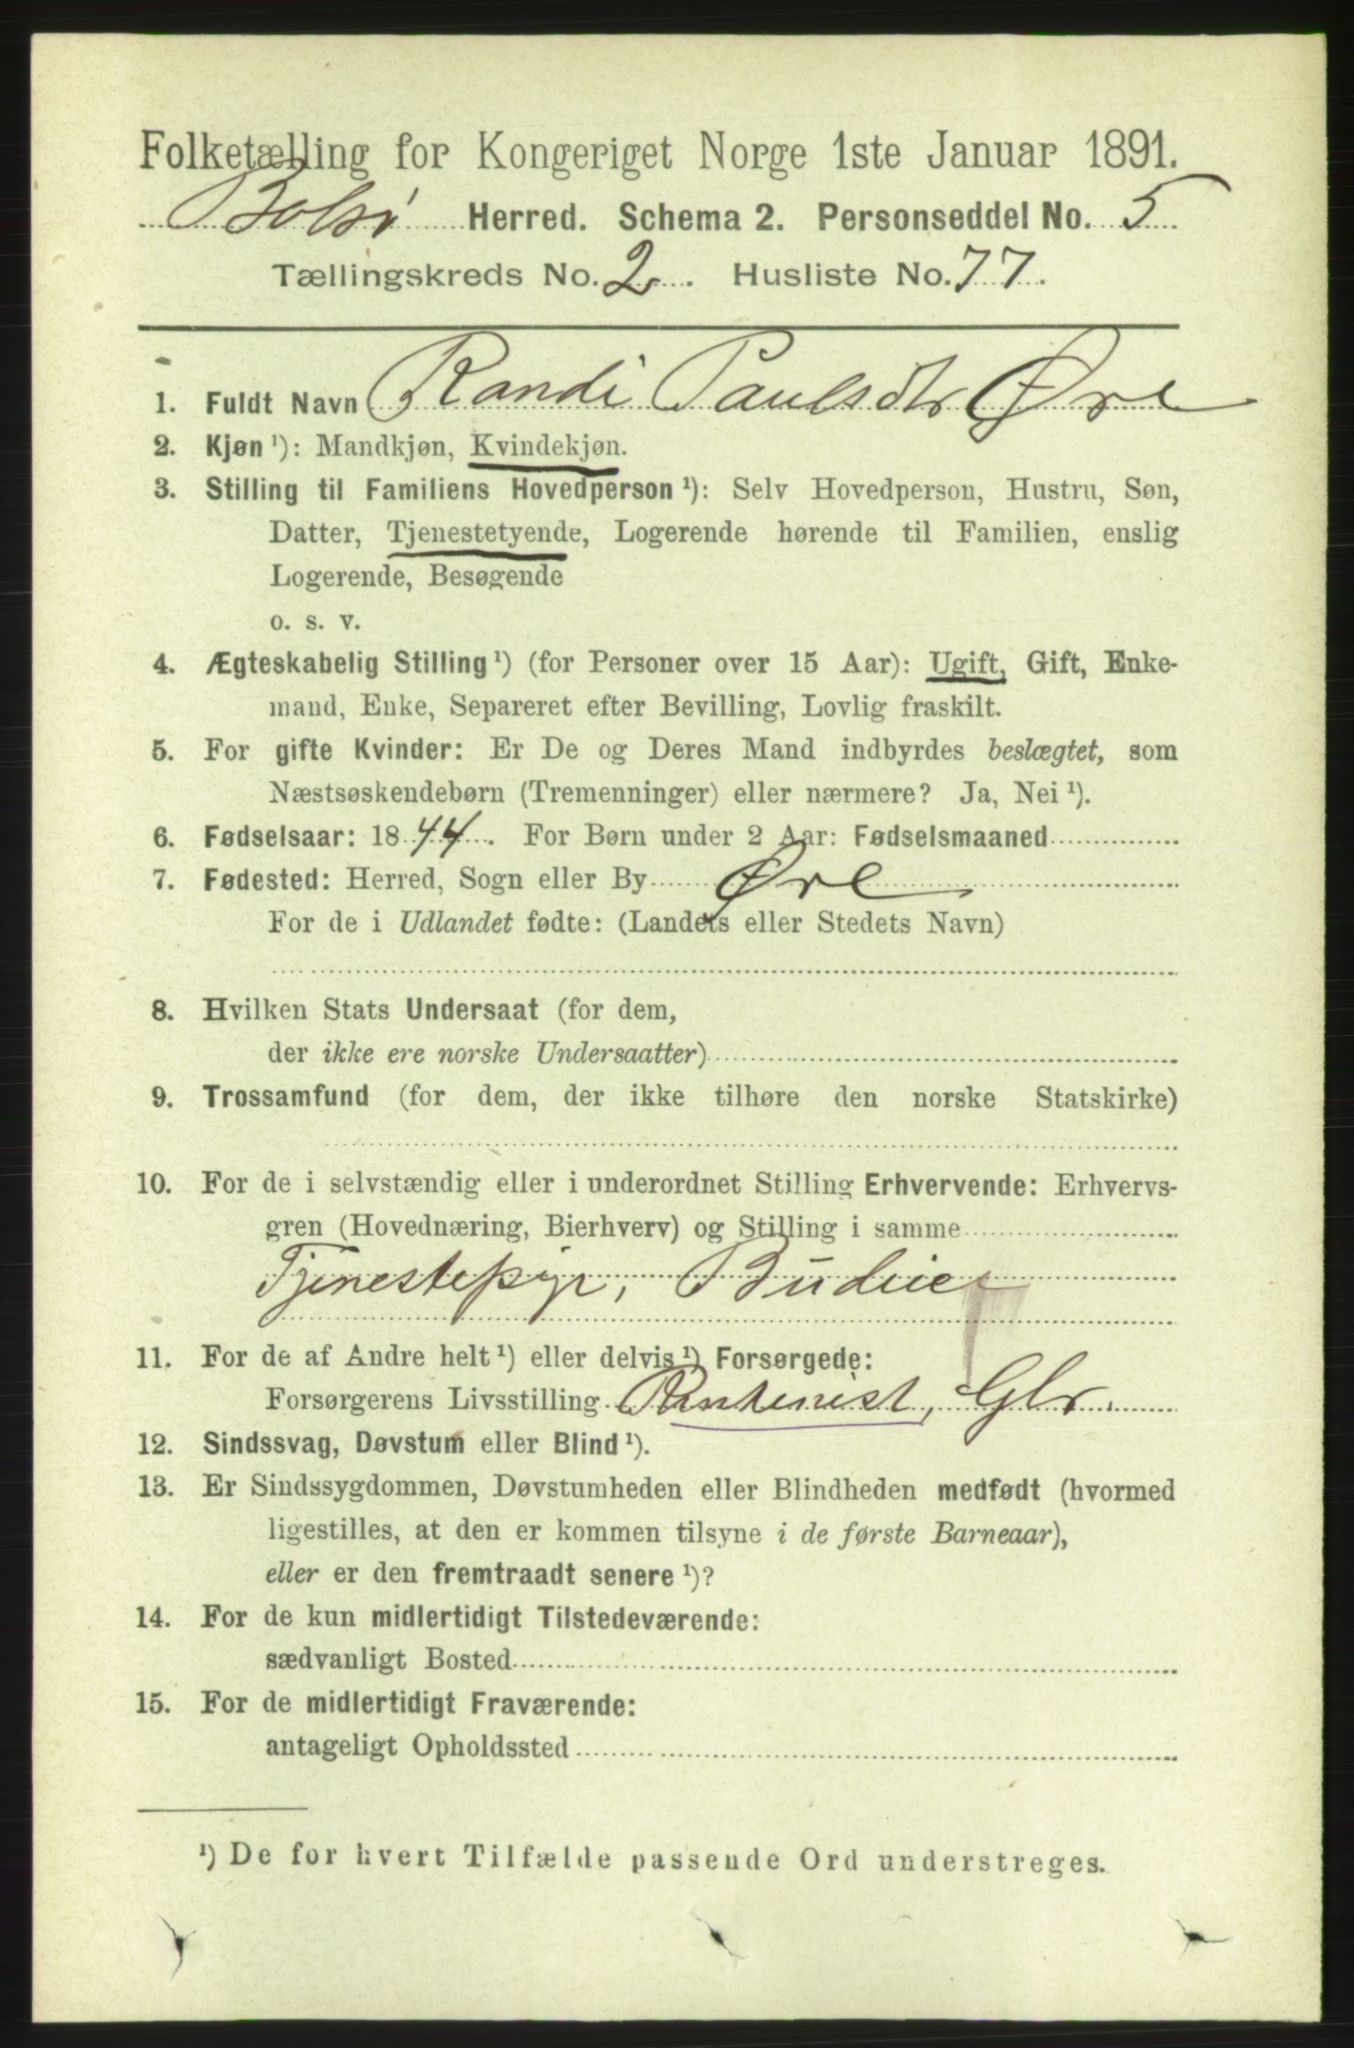 Folketælling for Kongeriget Norge 1ste Januar 1891.
Bolsø Herred. Schema 2. Personseddel No. 5
Tællingskreds No. 2. Husliste No. 77.
1. Fuldt Navn Randi Paulsdtr Øre
2. Kjøn ¹): Mandkjøn, Kvindekjøn.
3. Stilling til Familiens Hovedperson ¹): Selv Hovedperson, Hustru, Søn,
Datter, Tjenestetyende, Logerende hørende til Familien, enslig
Logerende, Besøgende
o. s. v.
4. Ægteskabelig Stilling ¹) (for Personer over 15 Aar): Ugift, Gift, Enke-
mand, Enke, Separeret efter Bevilling, Lovlig fraskilt.
5. For gifte Kvinder: Er De og Deres Mand indbyrdes beslægtet, som
Næstsøskendebørn (Tremenninger) eller nærmere? Ja, Nei ¹).
6. Fødselsaar: 1844. For Børn under 2 Aar: Fødselsmaaned
7. Fødested: Herred, Sogn eller By Øre
For de i Udlandet fødte: (Landets eller Stedets Navn)
8. Hvilken Stats Undersaat (for dem,
der ikke ere norske Undersaatter)
9. Trossamfund (for dem, der ikke tilhøre den norske Statskirke)
10. For de i selvstændig eller i underordnet Stilling Erhvervende: Erhvervs-
gren (Hovednæring, Bierhverv) og Stilling i samme
Tjenestepige, Budeie
11. For de af Andre helt ¹) eller delvis ¹) Forsørgede:
Forsørgerens Livsstilling
12. Sindssvag, Døvstum eller Blind ¹).
13. Er Sindssygdommen, Døvstumheden eller Blindheden medfødt (hvormed
ligestilles, at den er kommen tilsyne i de første Barneaar),
eller er den fremtraadt senere ¹)?
14. For de kun midlertidigt Tilstedeværende:
sædvanligt Bosted
15. For de midlertidigt Fraværende:
antageligt Opholdssted
¹) De for hvert Tilfælde passende Ord understreges.